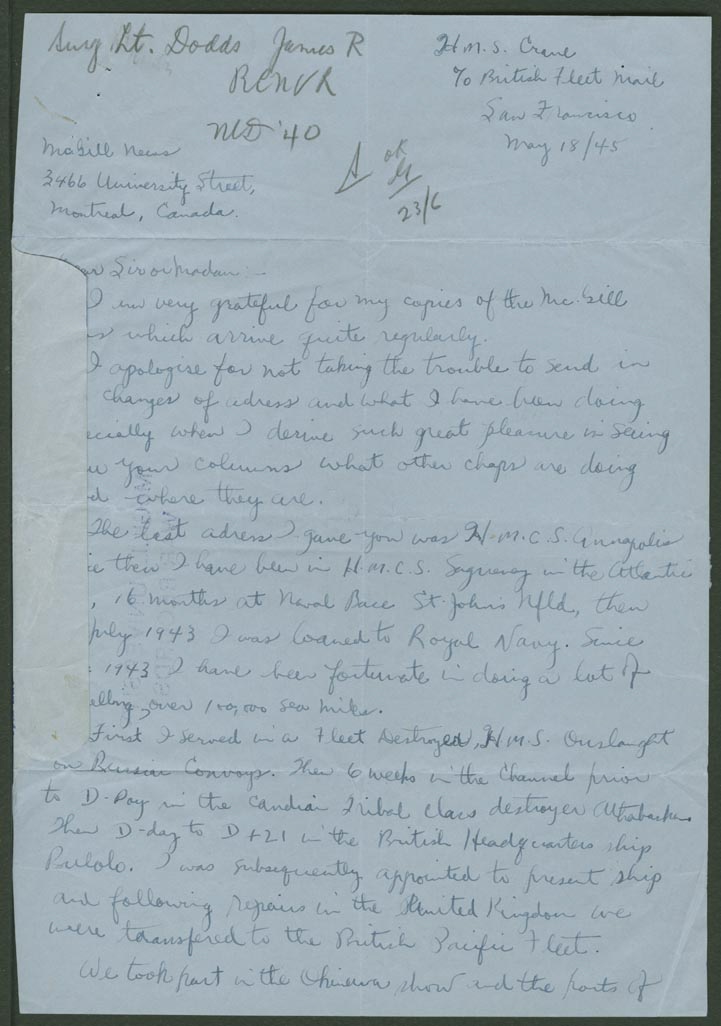 Surg Lt. Dodds James R
RCNVR
MD '40
H.M.S. Crane
c/o British Fleet Mail
San Francisco
May 18/45
McGill News
3466 University Street,
Montreal, Canada.
23/6
ar Sir or Madam:-
I am very grateful for my copies of the Mc.Gill
s which arrive quite regularly.
I apologise for not taking the trouble to send in
changes of adress and what I have been doing
ecially when I derive such great pleasure in seeing
your columns what other chaps are doing
d where they are.
The last adress I gave you was H.M.C.S. Annapolis
ce then I have been in H.M.C.S. Saguenay in the Atlantic
, 16 months at Naval Base St. John's Nfld, then
July 1943 I was loaned to Royal Navy. Since
1943 I have been fortunate in doing a lot of
elling, over 100,000 sea miles.
First I served in a Fleet Destroyer, H.M.S. Onslaught
on Russian Convoys. Then 6 weeks in the Channel prior
to D-Day in the Candian Tribal class destroyer Athabaskan
Then D-day to D+21 in the British Headquarters ship
Bulolo. I was subsequently appointed to present ship
and following repairs in the United Kingdom we
were transfered to the British Pacific Fleet.
We took part in the Okinawa show and the ports of